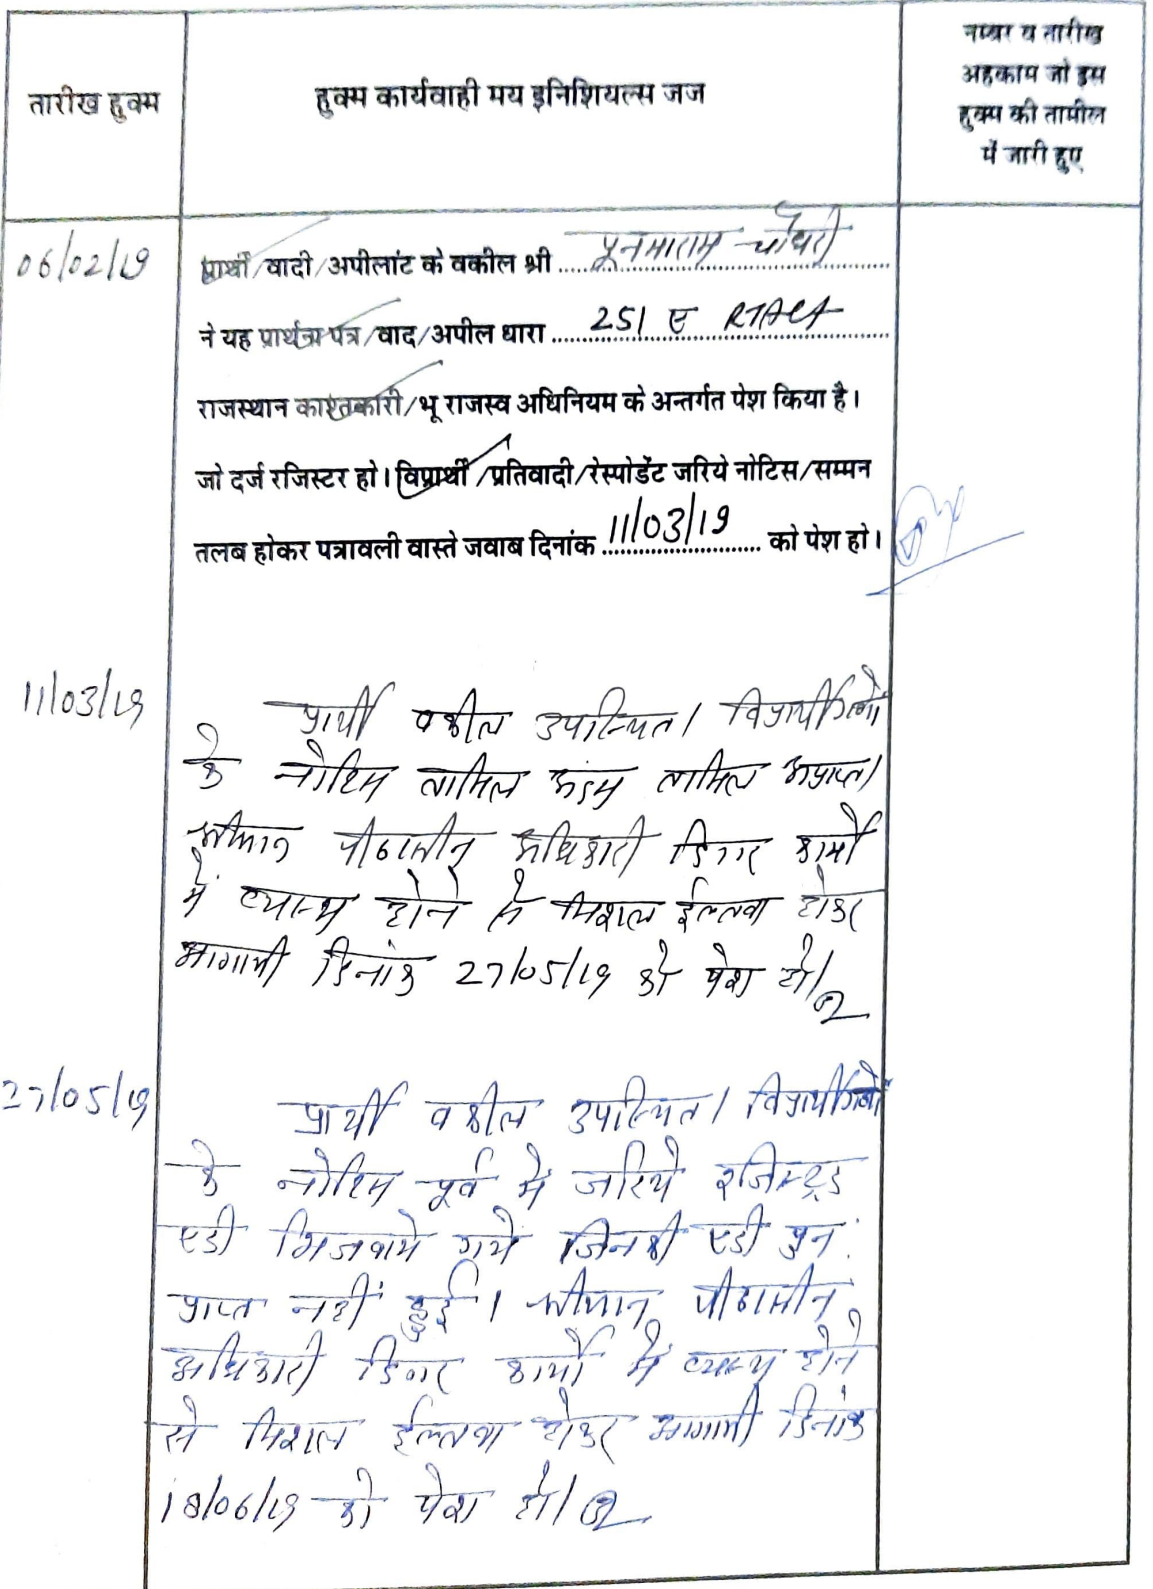 तारीख हुक्म
हुक्म कार्यवाही मय इनिशियल्स जज
नम्बर व तारीख
अहकाम जो इस
हुक्म की तामील
में जारी हुए
06/02/19
प्रार्थी/वादी/अपीलांट के वकील श्री पूनमाराम चौधरी
ने यह प्रार्थना पत्र/वाद/अपील धारा 251 ए RTAct
राजस्थान काश्तकारी/भू राजस्व अधिनियम के अन्तर्गत पेश किया है।
जो दर्ज रजिस्टर हो। विप्रार्थी/प्रतिवादी/रेस्पोडेंट जरिये नोटिस/सम्मन
तलब होकर पत्रावली वास्ते जवाब दिनांक 11/03/19 को पेश हो।
11/03/19
प्रार्थी वकील उपस्थित। विप्रार्थीगणों
के नोटिस तामिल अदम तामिल अप्राप्त।
श्रीमान पीठासीन अधिकारी दिगर कार्यों
में व्यस्थ होने से मिशल ईल्तवा होकर
आगामी दिनांक 27/05/19 को पेश हो।
27/05/19
प्रार्थी वकील उपस्थित। विप्रार्थीगणों
के नोटिस पूर्व में जरिये रजिस्ट्रड
एडी भिजवाये गये जिनकी एडी पुन:
प्राप्त नहीं हुई। श्रीमान पीठासीन
अधिकारी दिगर कार्यों में व्यस्थ होने
से मिशल ईल्तवा होकर आगामी दिनांक
18/06/19 को पेश हो।